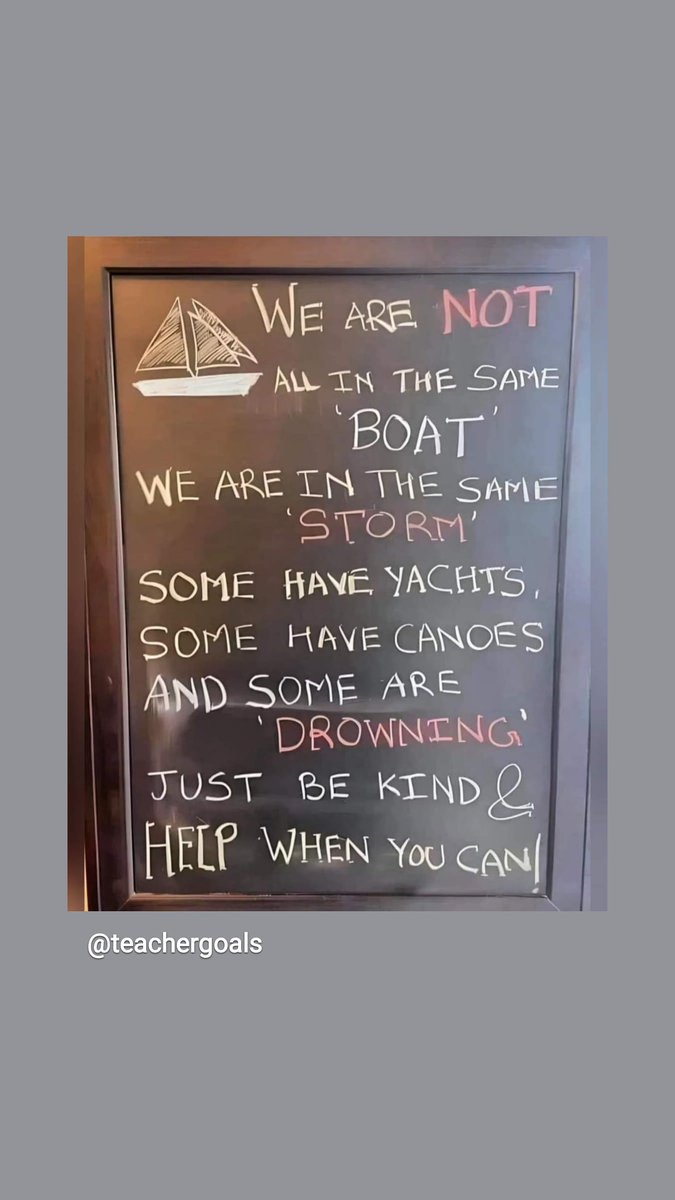 WE ARE NOT
ALL IN THE SAME
'BOAT'
WE ARE IN THE SAME
'STORM'
SOME HAVE YACHTS,
SOME HAVE CANOES
AND SOME ARE
'DROWNING'
JUST BE KIND &
HELP WHEN YOU CAN!
@teachergoals